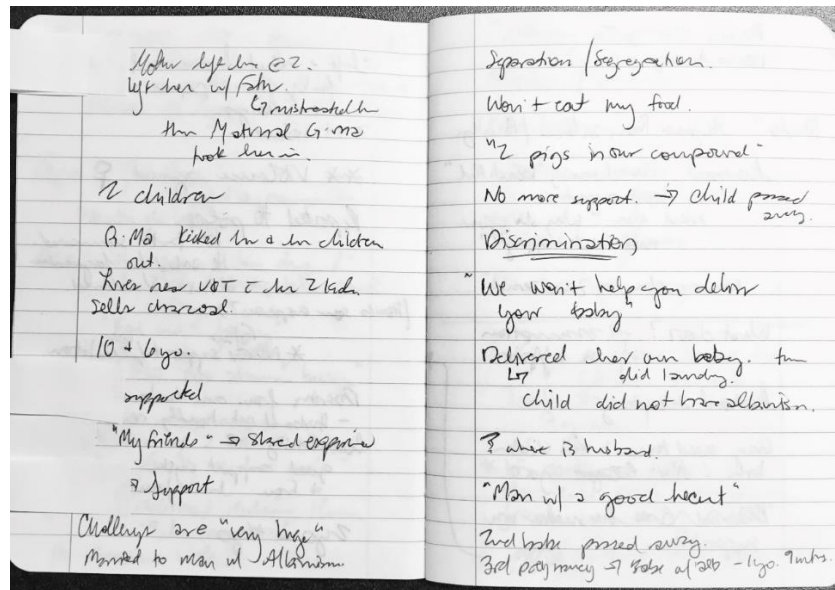 Mother left her @ 2.
left her w/ Father.
↳ mistreated her
then Maternal G-ma
took her in.
2 children
G-Ma kicked her & her children
out.
Lives near VOT c her 2 kids.
Sells charcoal.
10 + 6 yo.
supported
"My friends" → shared experience
→ Support
Challenges are "very huge"
Married to man w/ Albinism.
Separation / Segregation.
Won't eat my food.
"2 pigs in our compound"
No more support. → child passed
away.
Discrimination
"We won't help you deliver
your baby"
Delivered her own baby. then
↳ did laundry.
Child did not have albinism.
? where is husband.
"Man w/ a good heart"
2nd babe passed away.
3rd pregnancy → babe w/ alb - 1 yo. 9 mths.